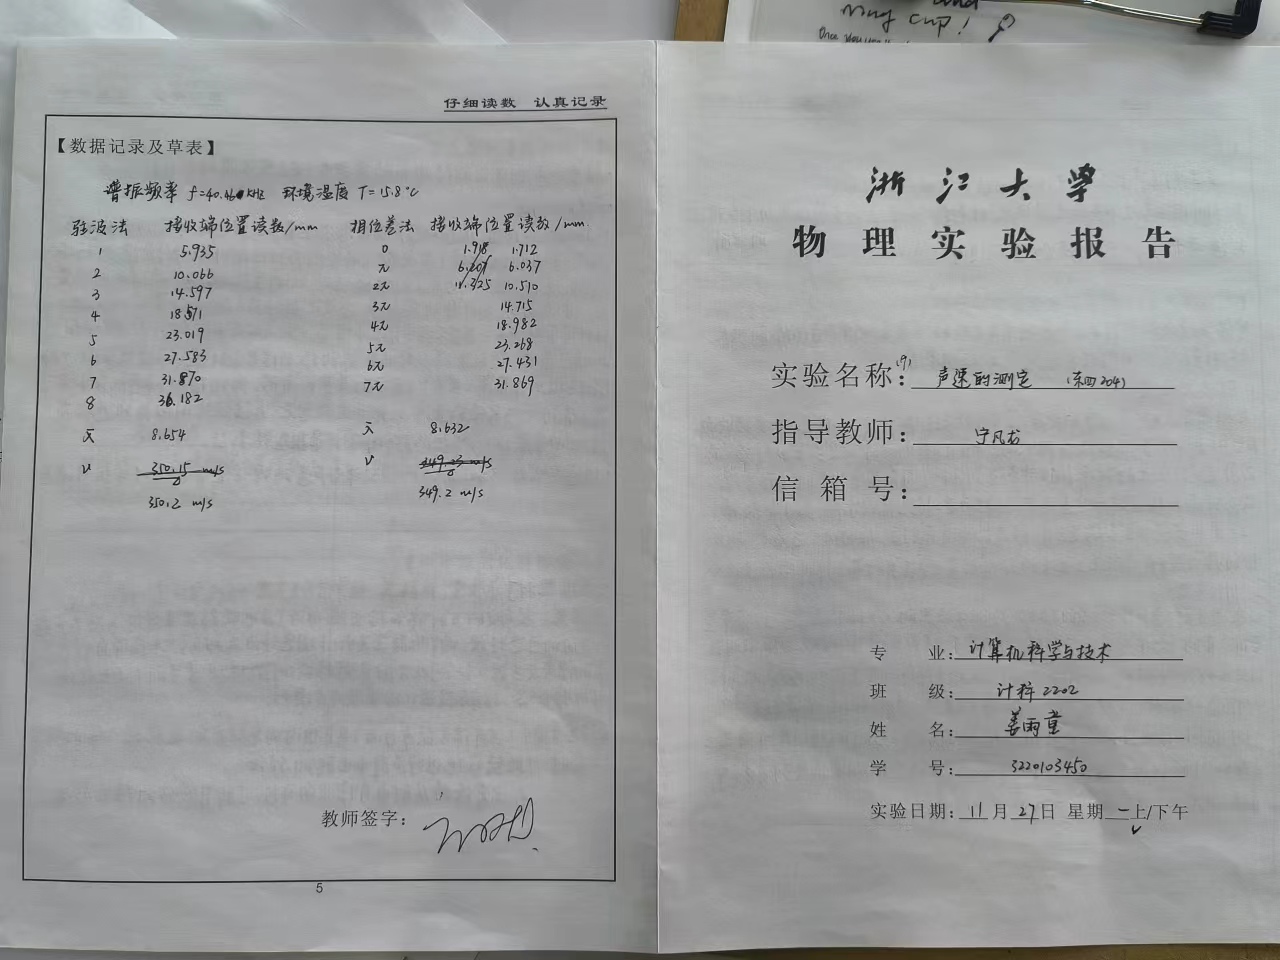 and
my cup!
Once you
仔细读数 认真记录
【数据记录及草表】
谐振频率 f=40.460KHz 环境温度 T=15.8°C
驻波法 接收端位置读数/mm 相位差法 接收端位置读数/mm
1 5.935 0 1.918 1.712
2 10.066 π 6.201 6.037
3 14.597 2π 11.325 10.510
4 18.571 3π 14.715
5 23.019 4π 18.982
6 27.583 5π 23.268
7 31.870 6π 27.431
8 36.182 7π 31.869
x̄ 8.654 x̄ 8.632
v 350.15 m/s v 349.23 m/s
350.2 m/s 349.2 m/s
教师签字:
5
浙江大学
物理实验报告
实验名称: (9) 声速的测定 (东四204)
指导教师: 宁凡龙
信箱号:
专 业: 计算机科学与技术
班 级: 计科2202
姓 名: 姜雨童
学 号: 3220103450
实验日期: 11月27日 星期一上/下午